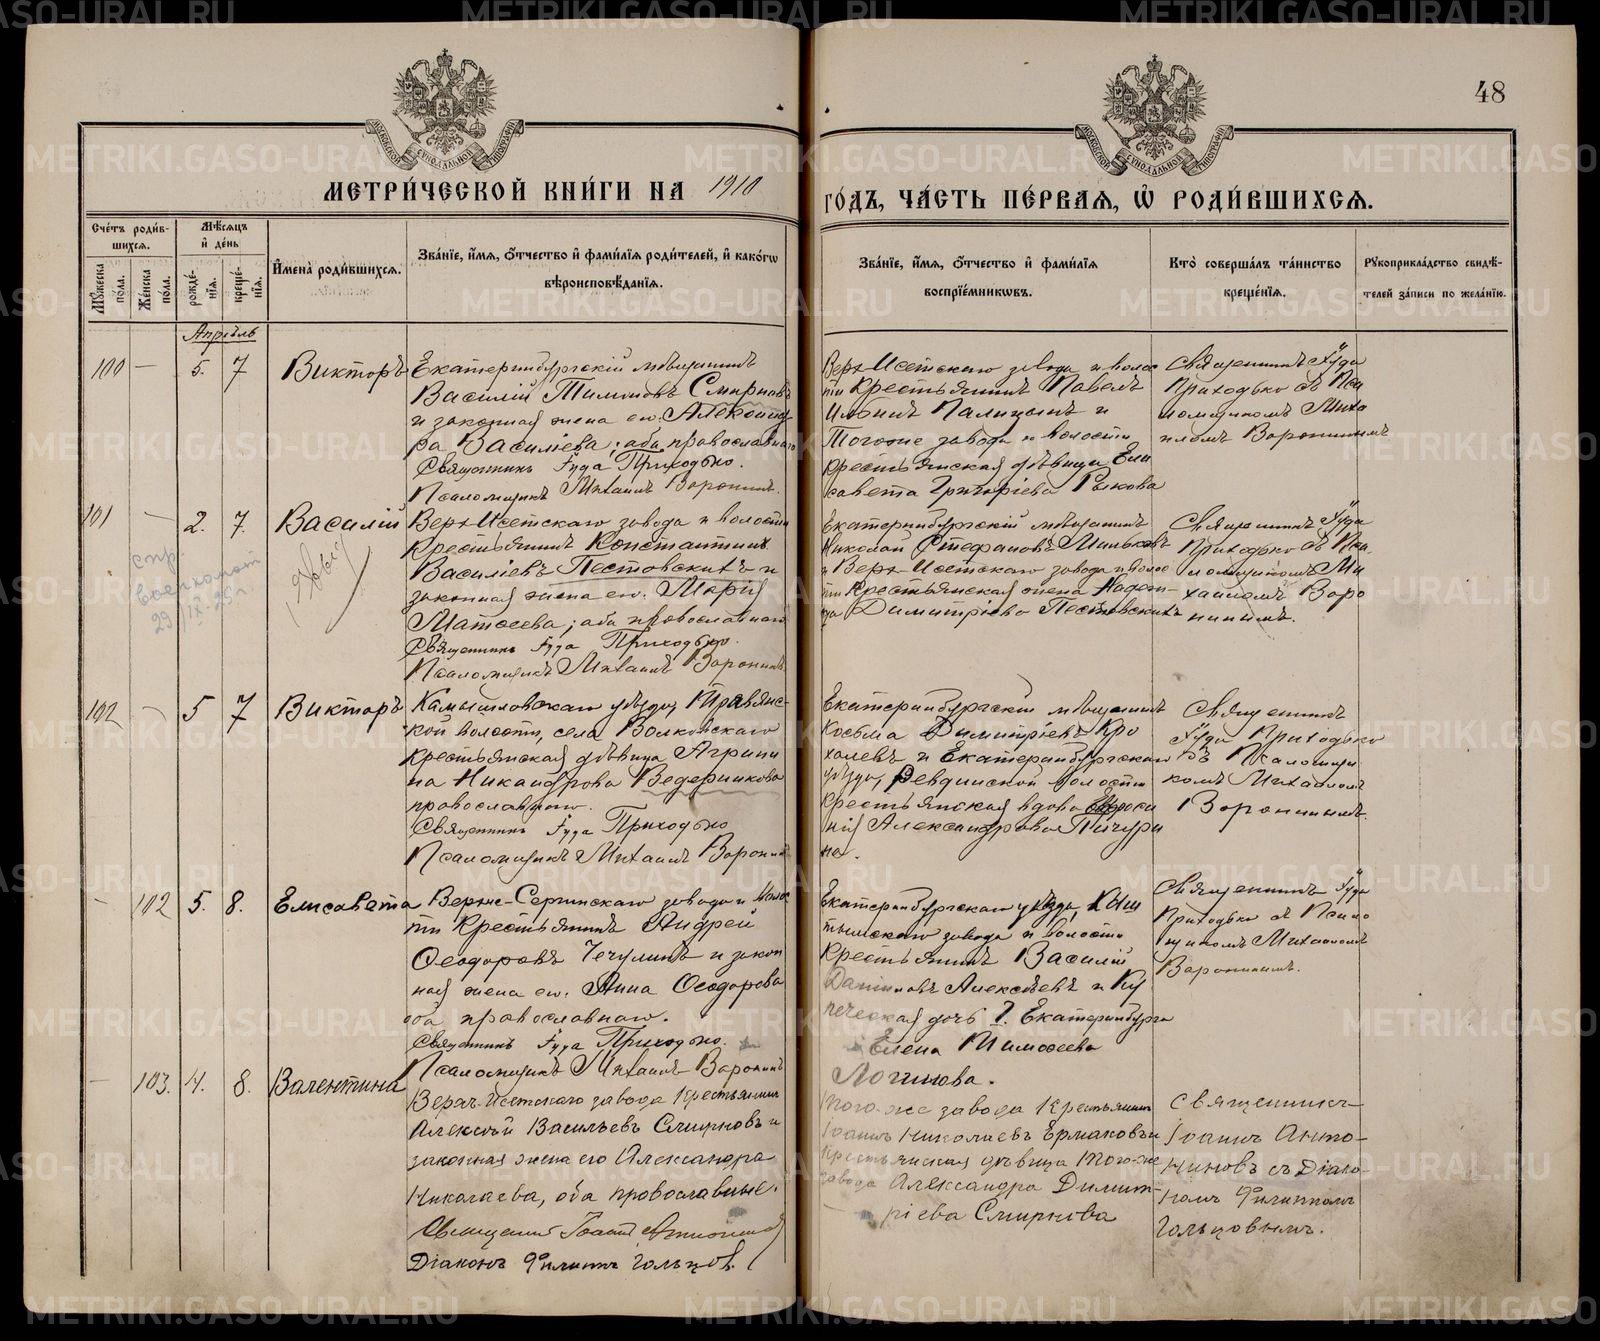 48
МЕТРИ́ЧЕСКОЙ КНИ́ГИ НА 1910
ГО́ДЪ, ЧА́СТЬ ПЕ́РВАЯ, Ѡ҆ РОДИ́ВШИХСЯ.
Сче́тъ роди́в-
шихся.
Мѣ́сяцъ
и҆ де́нь
Мꙋ́жеска
по́ла.
Же́нска
по́ла.
рожде́-
нїя.
креще́-
нїя.
И҆мена̀ роди́вшихся.
Зва́нїе, и҆́мя, ѻ҆́тчество и҆ фами́лїя роди́телей, и҆ како́гѡ
вѣроисповѣ́данїя.
Зва́нїе, и҆́мя, ѻ҆́тчество и҆ фами́лїя
воспрїе́мникѡвъ.
Кто̀ соверша́лъ та́инство
креще́нїя.
Рꙋкоприкла́дство свидѣ́-
телей за́писи по жела́нїю.
Апрѣль
100 — 5. 7 Викторъ
Екатеринбургскій мѣщанинъ
Василій Тимоновъ Смирновъ
и законная жена его Александ
ра Васильева, оба православнаго
Священникъ Іуда Приходько.
Псаломщикъ Михаилъ Воронинъ.
Верх-Исетскаго завода и волос
ти крестьянинъ Павелъ
Палицынъ и
Тогоже завода и волости
крестьянская дѣвица Ели
савета Григорьева Рыкова
Священникъ Іуда
Приходько съ Пса
ломщикомъ Миха
иломъ Воронинымъ
101 — 2. 7. Василій
Верх-Исетскаго завода и волости
крестьянинъ Константинъ
Васильевъ Пестовскихъ и
законная жена его Марія
Матѳеева, оба православнаго
Священникъ Іуда Приходько.
Псаломщикъ Михаилъ Воронинъ
спр.
военкомат
29/IX-25 г.
Екатеринбургскій мѣщанинъ
Николай Стефановъ Миньковъ
и Верх-Исетскаго завода и волос
ти крестьянская жена Надеж-
да Димитріева Пестовскихъ
Священникъ Іуда
Приходько съ Пса
ломщикомъ Ми
хаиломъ Воро
нинымъ.
102 — 5 7 Викторъ
Камышловскаго уѣзда, Травянс-
кой волости, села Волковскаго
крестьянская дѣвица Агрипи
на Никандрова Ведерникова
православнаго.
Священникъ Іуда Приходько
Псаломщикъ Михаилъ Воронинъ
Екатеринбургскій мѣщанинъ
Косьма Димитріевъ Кро
халевъ и Екатеринбургскаго
уѣзда, Ревдинской волости
крестьянская вдова Евфроси
нія Александрова Пичури
на.
Священникъ
Іуда Приходько
съ Псаломщи
комъ Михаиломъ
Воронинымъ.
— 102 5. 8. Елисавета
Верхне-Сергинскаго завода и волос
ти крестьянинъ Андрей
Ѳеодоровъ Чечулинъ и закон
ная жена его Анна Ѳеодорова
оба православнаго.
Священникъ Іуда Приходько.
Псаломщикъ Михаилъ Воронинъ
Екатеринбургскаго уѣзда, Кыш
тымскаго завода и волости
крестьянинъ Василій
Даниловъ Алексѣевъ и Ку
печеская дочь г. Екатеринбурга
Елена Тимоѳеева
Логинова.
Священникъ Іуда
Приходько съ Псалом
щикомъ Михаиломъ
Воронинымъ.
— 103. 4. 8. Валентина
Верхъ-Исетскаго завода крестьянинъ
Алексѣй Васильевъ Смирновъ и
законная жена его Александра
Николаева, оба православные.
Священникъ Іоаннъ Антоновъ
Діаконъ Филиппъ Гольцовъ.
того-же завода крестьянинъ
Іоаннъ Николаевъ Ермаковъ и
крестьянская дѣвица того-же
завода Александра Димит-
ріева Смирнова
Священникъ
Іоаннъ Анто-
ниновъ съ Діако-
номъ Филиппомъ
Гольцовымъ.
METRIKI.GASO-URAL.RU